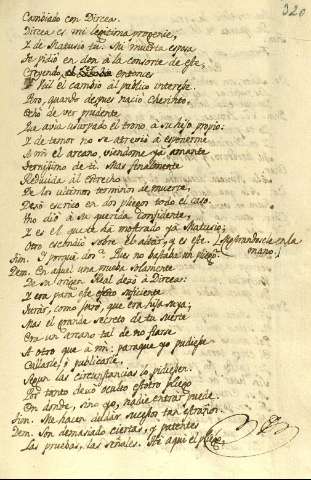 320
Cambiado con Dircea.
Dircea es mi legitima progenie,
Y de Matusio tu. Mi muerta esposa
Te pidió en don à la consorte de este,
Creyendo, entonces
Util el cambio al publico interese.
Pero, quando despues nació Cherinto,
Echó de ver prudente
Que avia usurpado el trono à su hijo propio.
Y de temor no se atrevió à exponerme
A mi el arcano, viendome ya amante
Ternissimo de ti. Mas finalmente
Reducida al estrecho
De los ultimos terminos de muerte,
Dexó escrito en dos pliegos todo el caso.
Uno dió à su querida confidente,
Y es el que te ha mostrado ya Matusio;
Otro escondió sobre el altar, y es este. [Mostrandosele en la
mano.]
Tim. Y porquè dos? Pues no bastaba un pliego?
Dem. En aquel una prueba solamente
De su origen Real dexó à Dircea:
Y era para este efeto suficiente
Jurar, como juró, que era hija suya,
Mas el grande secreto de tu suerte
Era un arcano tal de no fiarse
A otro que à mi: paraque yo pudiesse
Callarle, ó publicarle,
Segun las circunstancias lo pidiessen.
Por tanto dexó oculto estotro pliego
En donde, sino yo, nadie entrar puede.
Tim. Me hacen dudar sucessos tan estraños.
Dem. Son demasiado ciertas, y patentes
Las pruebas, las señales. He aqui el pliego,